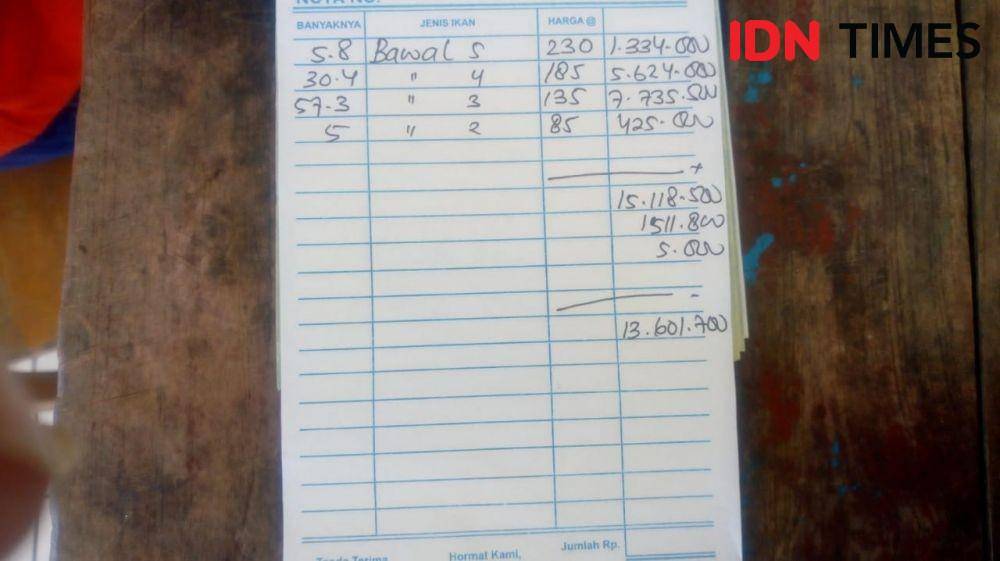 NOTA NO.
IDN TIMES
BANYAKNYA JENIS IKAN HARGA @
5.8 Bawal 5 230 1.334.000
30.4 " 4 185 5.624.000
57.3 " 3 135 7.735.500
5 " 2 85 425.000
+
15.118.500
1511.800
5.000
-
13.601.700
Jumlah Rp.
Tanda Terima Hormat Kami,